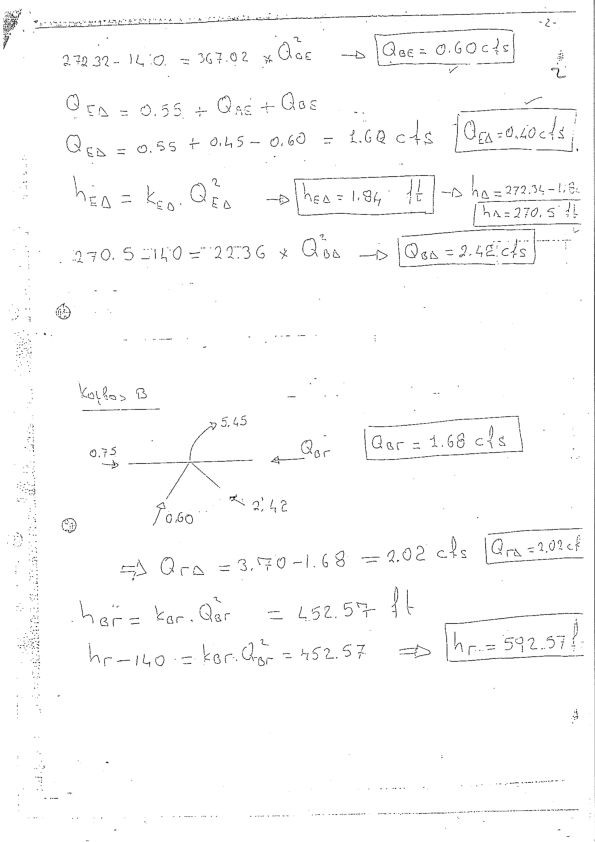 -2-
272.32-140 = 367.02 * Q²ΒΕ → QΒΕ = 0.60 cfs
# 2
QΕΔ = 0.55 + QΑΕ + QΒΕ
QΕΔ = 0.55 + 0.45 - 0.60 = 1.60 cfs QΕΔ = 0.40 cfs
hΕΔ = kΕΔ. Q²ΕΔ → hΕΔ = 1.84 ft → hΔ = 272.34-1.8
hΔ = 270.5 ft
270.5-140 = 22.36 * Q²ΒΔ → QΒΔ = 2.42 cfs
Κόμβος Β
5.45
0.75 QΒΓ QΒΓ = 1.68 cfs
2.42
0.60
⇒ QΓΔ = 3.70-1.68 = 2.02 cfs QΓΔ = 2.02 cf
hΒΓ = kΒΓ. Q²ΒΓ = 452.57 ft
hΓ-140 = kΒΓ. Q²ΒΓ = 452.57 ⇒ hΓ = 592.57 f